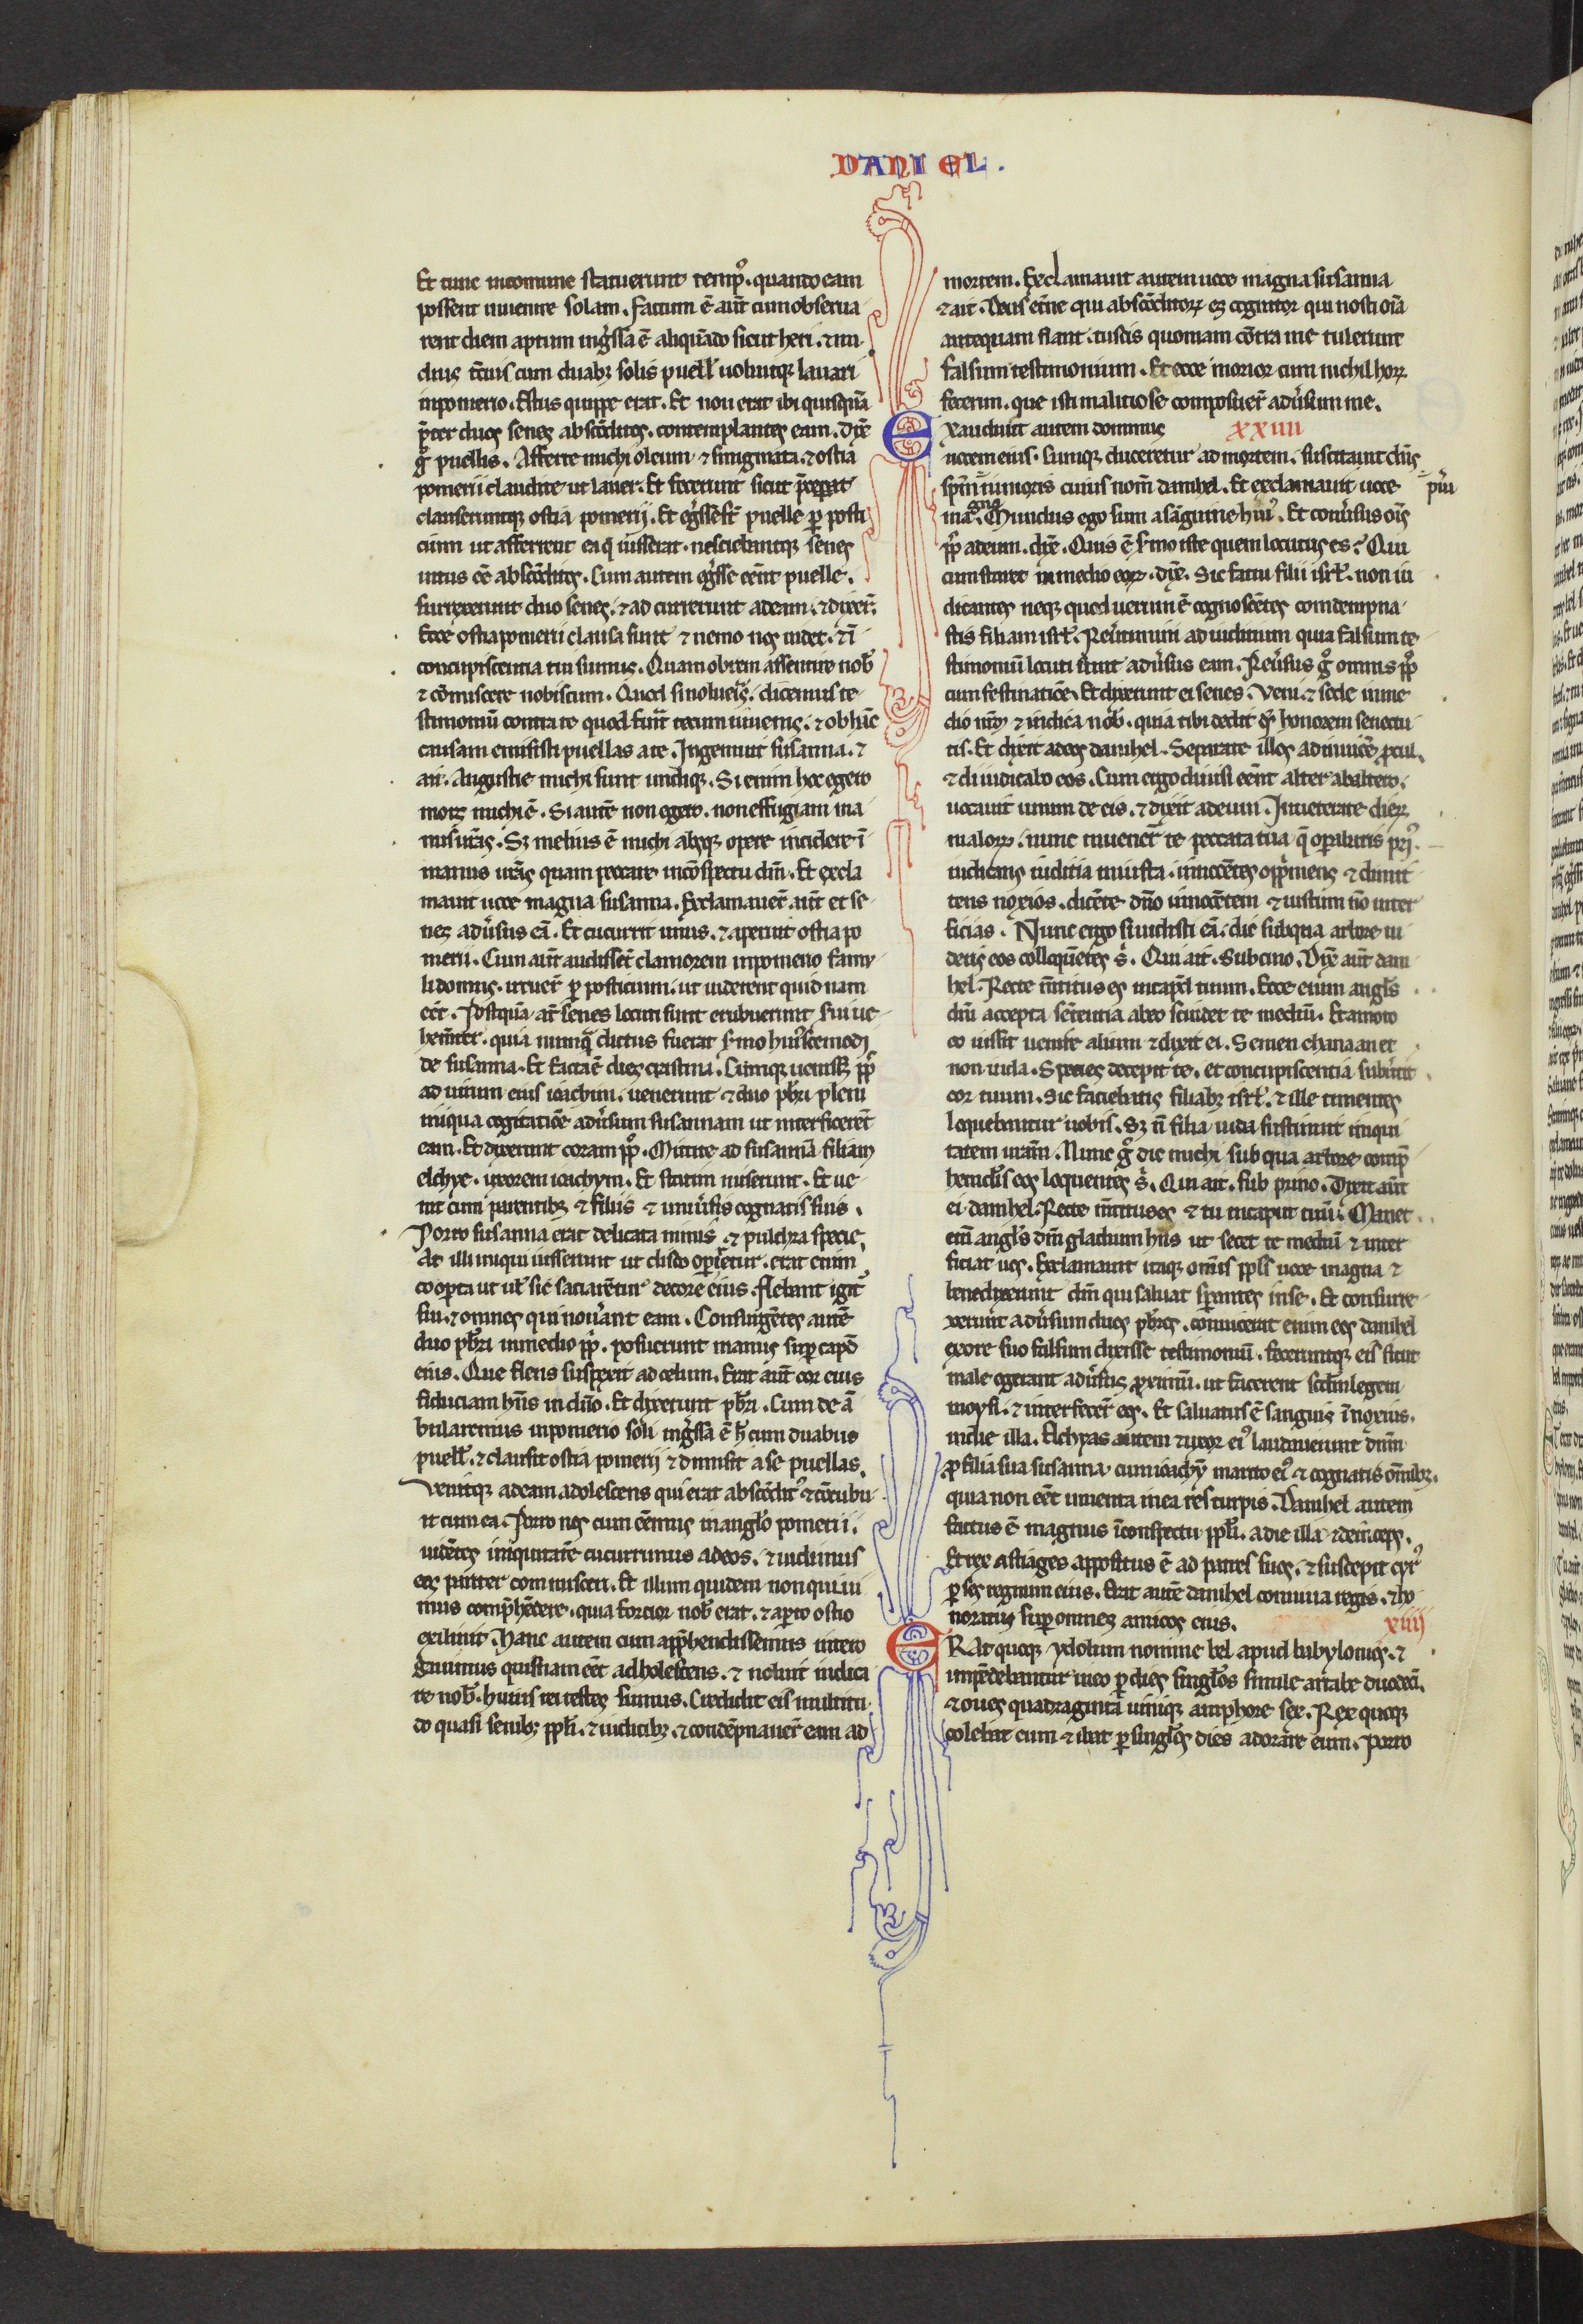 DANIEL.
Et tunc incomune statuerunt temp᷒. quando eam
possent inuenire solam. Factum ē aut̄ cum obserua
rent diem aptum ingͥssa ē aliquādo sicut heri. ⁊ nu
dius t̄cius cum duabꝫ solis puell̄ uoluitqꝫ lauari
inpomerio. Estus quippe erat. Et non erat ibi quisquā
p̄ter duos senes abscōditos. contemplantes eam. Dix̄
gͦ puellis. Afferte michi oleum ⁊ smigmata. ⁊ ostia
pomerii claudite ut lauer. Et fecerunt sicut p̄ceperat
clauseruntqꝫ ostia pomerij. Et egͥsse st̄ puelle ꝑ posti
cium ut afferrent ea q̄ iusserat. nesciebantqꝫ senes
intus eē abscōditos. Cum autem egͥsse eēnt puelle.
surrexerunt duo senes. ⁊ ad currerunt adeam. ⁊ dixer̄.
Ecce ostia pomerii clausa sunt ⁊ nemo nos uidet. ⁊ ī
concupiscentia tui sumus. Quam obrem assentire nob̄
⁊ cōmiscere nobiscum. Quod si nolueris. dicemus te
stimoniū contra te quod fuit̄ tecum iuuenis. ⁊ ob hāc
causam emisisti puellas a te. Ingemuit susanna. ⁊
ait. Angustie michi sunt undiqꝫ. Si enim hoc egero
mors michi ē. Si autē non egero. non effugiam ma
nus ur̄as. Sꝫ melius ē michi absqꝫ opere incidere ī
manus ur̄as quam peccare incōspectu dn̄i. Et excla
mauit uoce magna susanna. Exclamauer̄ aut̄ et se
nes adu̓sus eā. Et cucurrit unus. ⁊ aperuit ostia po
merii. Cum aut̄ audissēt clamorem inpomerio famu
li domus. irruer̄ ꝑ posticium. ut uiderent quid nam
eēt. Postquā at̄ senes locuti sunt erubuerunt serui ue
hem̄ter. quia nunqͣ dictus fuerat s̓mo hui᷒cemodi
de susanna. Et facta ē dies crastina. Cumqꝫ uenisset pp̄s
ad uirum eius ioachim. uenerunt ⁊ duo pb̄ri pleni
iniqua cogitatiōe adu̓sum susannam ut interficerēt
eam. Et dixerunt coram pp̄o. Mittite ad susannā filiam
elchye. uxorem ioachym. Et statim miserunt. Et ue
nit cum parentibꝫ ⁊ filiis ⁊ uniu̓sis cognatis suis.
Porro susanna erat delicata nimis ⁊ pulchra specie.
At illi iniqui iusserunt ut disco operiretur. erat enim
cooperta ut ul̄ sic saciarētur decore eius. Flebant igit᷒
sui. ⁊ omnes qui nou̓ant eam. Consurgētes autē
duo pb̄ri inmedio pp̄i. posuerunt manus sup̄ capđ
eius. Que flens suspexit ad celum. Erat aut̄ cor eius
fiduciam hn̄s in dn̄o. Et dixerunt pb̄ri. Cum de ā
bularemus inpomerio soli ingͥssa ē hͦ cum duabus
puell̄. ⁊ clausit ostia pomerij ⁊ dimisit a se puellas.
Venitqꝫ adeam adolescens qui erat abscōdit᷒ ⁊ cōcubu
it cum ea. Porro nos cum eēmus in angl̄o pomerii.
uidētes iniquitatē cucurrimus adeos. ⁊ uidimus
eos pariter commisceri. Et illum quidem non quiui
mus comp̄hēdere. quia forcior nob̄ erat. ⁊ aperto ostio
exiliuit. Hanc autem cum app̄hendissemus intero
gauimus quisnam eēt adholescens. ⁊ noluit indica
re nob̄. huius rei testes sumus. Credidit eis multitu
do quasi senibꝫ pp̄li. ⁊ iudicibꝫ. ⁊ condēpnauer̄ eam ad
mortem. Exclamauit autem uoce magna susanna
⁊ ait. Deus et̄ne qui abscōditoꝝ es cognitor qui nosti oīa
antequam fiant. tu scis quoniam cōtra me tulerunt
falsum testimonium. Et ecce morior cum nichil hoꝝ
fecerim. que isti malitiose composuer̄ adu̓sum me.
Exaudiuit autem dominus XXIIII
uocem eius. Cumqꝫ duceretur ad mortem. suscitauit dn̄s
sp̄m iunioris cuius nom̄ danihel. Et exclamauit uoce
magna. Mundus ego sum a sāguine hui᷒. Et conu̓sus oīs
pp̄s adeum. dix̄. Quis ē s̓mo iste quem locutus es? Qui
cum staret in medio eoꝝ. dix̄. Sic fatui filii isrl̄. non iu
dicantes neqꝫ quod uerum ē cognoscētes comdempna
stis filiam isrl̄. Reu̓timini ad iuditium quia falsum te
stimoniū locuti sunt adu̓sus eam. Reu̓sus gͦ omnis pp̄s
cum festinatiōe. Et dixerunt ei senes. Veni. ⁊ sede inme
dio nr̄m ⁊ indica nob̄. quia tibi dedit ds̄ honorem senectu
tis. Et dixit adeos danihel. Separate illos ad inuicē procul.
⁊ di iudicabo eos. Cum ergo diuisi eēnt alter abaltero.
uocauit unum de eis. ⁊ dixit adeum. Inueterate dierꝝ
maloꝝ. nunc inuener̄ te peccata tua q̄ opabaris pri᷒.
iudicans iuditia iniusta. innocētes opp̄mens ⁊ dimit
tens noxios. dicēte dn̄o innocētem ⁊ iustum nō inter
ficias. Nunc ergo si uidisti eā. dic subqua arbore ui
deris eos colloquētes s̓. Qui ait. Sub cino. Dix̄ aut̄ dani
hel. Recte m̄titus es incapd̄ tuum. Ecce enim angl̄s
dn̄i accepta sētentia abeo scindet te mediū. Et amoto
eo iussit uenire alium ⁊ dixit ei. Semen chanaan et
non iuda. Species decepit te. et concupiscentia subu̓tit
cor tuum. Sic faciebatis filiabꝫ isrl̄. ⁊ ille timentes
loquebantur uobis. Sꝫ n̄ filia iuda sustinuit iniqui
tatem uram̄. Nunc gͦ dic michi sub qua arbore comp̄
hendisis eos loquentes s̓. Qui ait. sub pruno. Dixit aut̄
ei danihel. Recte m̄titus es ⁊ tu incaput tuū. Manet
enī angl̄s dn̄i gladium hn̄s ut secet te mediū ⁊ inter
ficiat uos. Exclamauit itaqꝫ omīs pp̄ls uoce magna ⁊
benedixerunt dn̄m qui saluat sperantes inse. Et consurre
xerunt adu̓sum duos pb̄ros. conuicerat enim eos danihel
exore suo falsum dixisse testimoniū. feceruntqꝫ eis sicut
male egerant adu̓sus proximū. ut facerent scd̄m legem
moysi. ⁊ interfecer̄ eos. Et saluatus ē sanguis īnoxius.
indie illa. Elchyas autem ⁊ uxor ei᷒ laudauerunt dnm̄
ꝓ filia sua susanna cum ioachȳ marito ei᷒ ⁊ cognatis oīmbꝫ.
quia non eēt inuenta inea res turpis. Danihel autem
factus ē magnus īconspectu pp̄li. a die illa ⁊ deinceps.
Et rex astiages appositus ē ad patres suos. ⁊ suscepit cyr᷒
perses regnum eius. Erat autē danihel conuiua regis. ⁊ ho
noratus sup̄ omnes amicos eius. XIIII
ERat quoqꝫ ydolum nomine bel apud babylonios. ⁊
impēdebantur ineo ꝑ dies singl̄os simile artabe duodeci̅.
⁊ oues quadraginta uiniqꝫ amphore sex. Rex quoqꝫ
colebat eum ⁊ ibat ꝑ singl̄os dies adorare eum. Porro